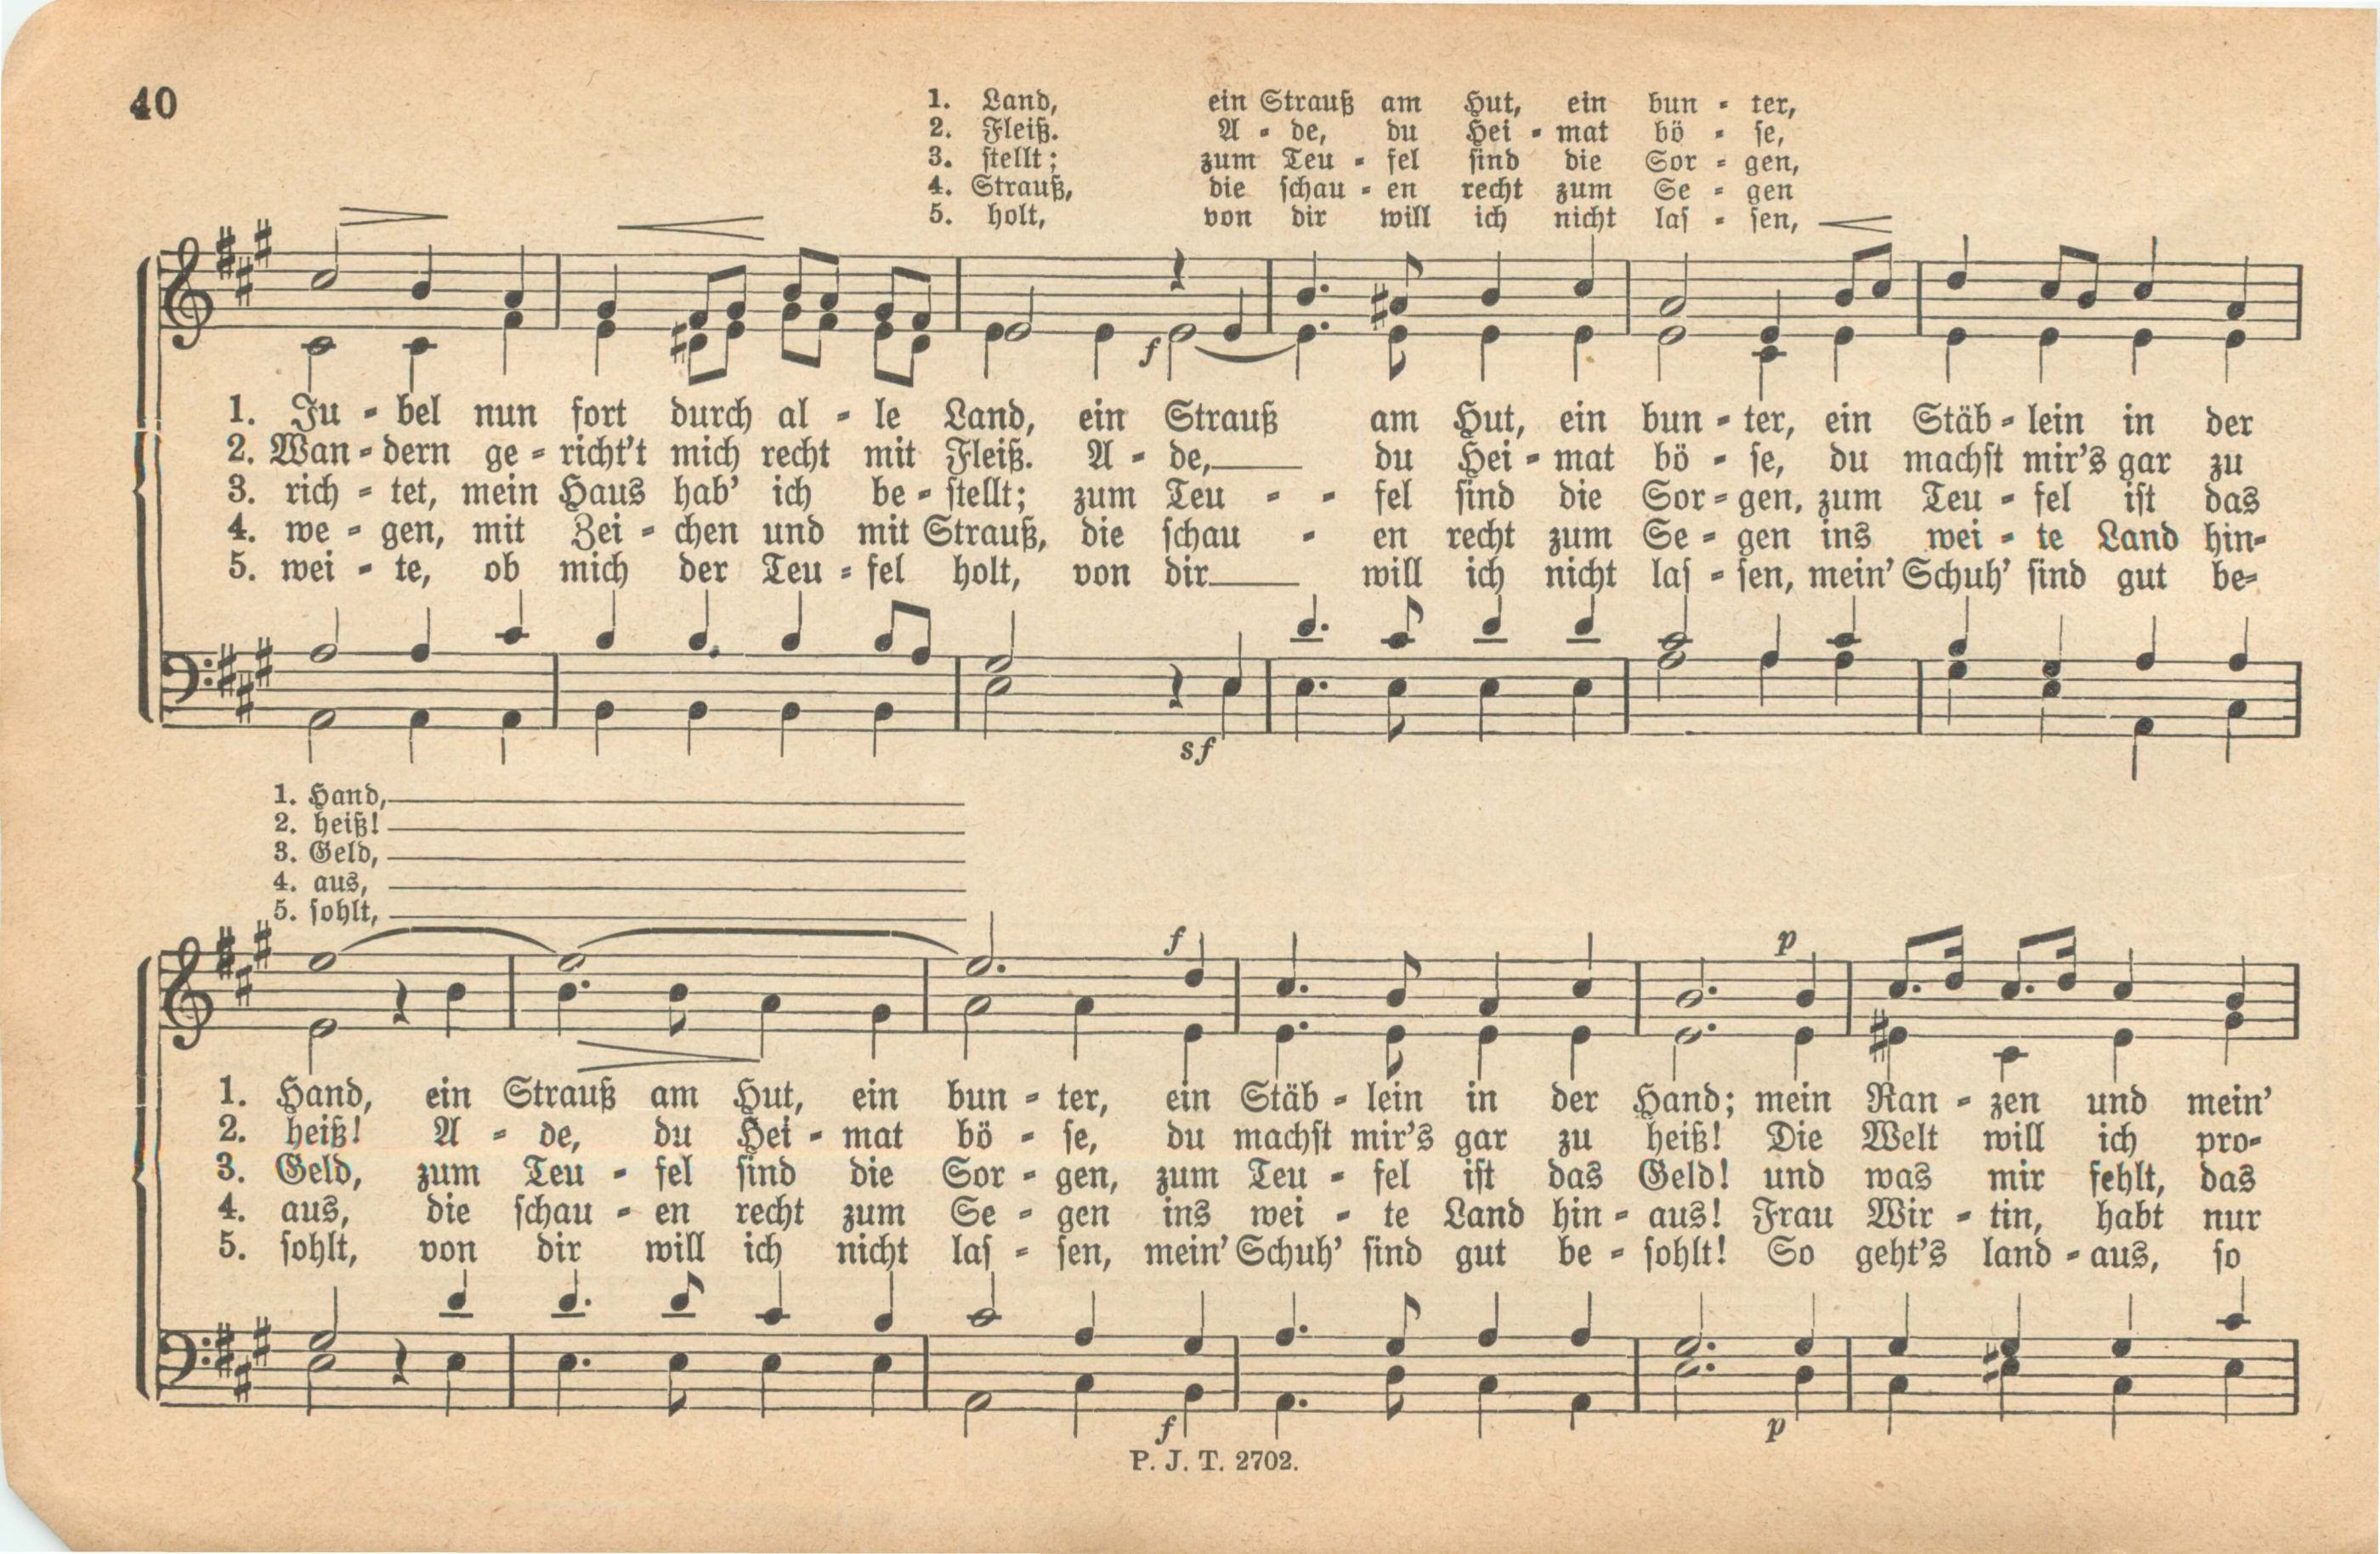 40
1. Land, ein Strauß am Hut, ein bun - ter,
2. Fleiß. A - de, du Hei - mat bö - se,
3. stellt; zum Teu - fel sind die Sor - gen,
4. Strauß, die schau - en recht zum Se - gen
5. holt, von dir will ich nicht las - sen,
f
1. Ju - bel nun fort durch al - le Land, ein Strauß am Hut, ein bun - ter, ein Stäb - lein in der
2. Wan - dern ge - richt't mich recht mit Fleiß. A - de, du Hei - mat bö - se, du machst mir's gar zu
3. rich - tet, mein Haus hab' ich be - stellt; zum Teu - - fel sind die Sor - gen, zum Teu - fel ist das
4. we - gen, mit Zei - chen und mit Strauß, die schau - en recht zum Se - gen ins wei - te Land hin-
5. wei - te, ob mich der Teu - fel holt, von dir will ich nicht las - sen, mein' Schuh' sind gut be-
sf
1. Hand,
2. heiß!
3. Geld,
4. aus,
5. sohlt,
f p
1. Hand, ein Strauß am Hut, ein bun - ter, ein Stäb - lein in der Hand; mein Ran - zen und mein'
2. heiß! A - de, du Hei - mat bö - se, du machst mir's gar zu heiß! Die Welt will ich pro-
3. Geld, zum Teu - fel sind die Sor - gen, zum Teu - fel ist das Geld! und was mir fehlt, das
4. aus, die schau - en recht zum Se - gen ins wei - te Land hin - aus! Frau Wir - tin, habt nur
5. sohlt, von dir will ich nicht las - sen, mein' Schuh' sind gut be - sohlt! So geht's land - aus, so
f p
P. J. T. 2702.